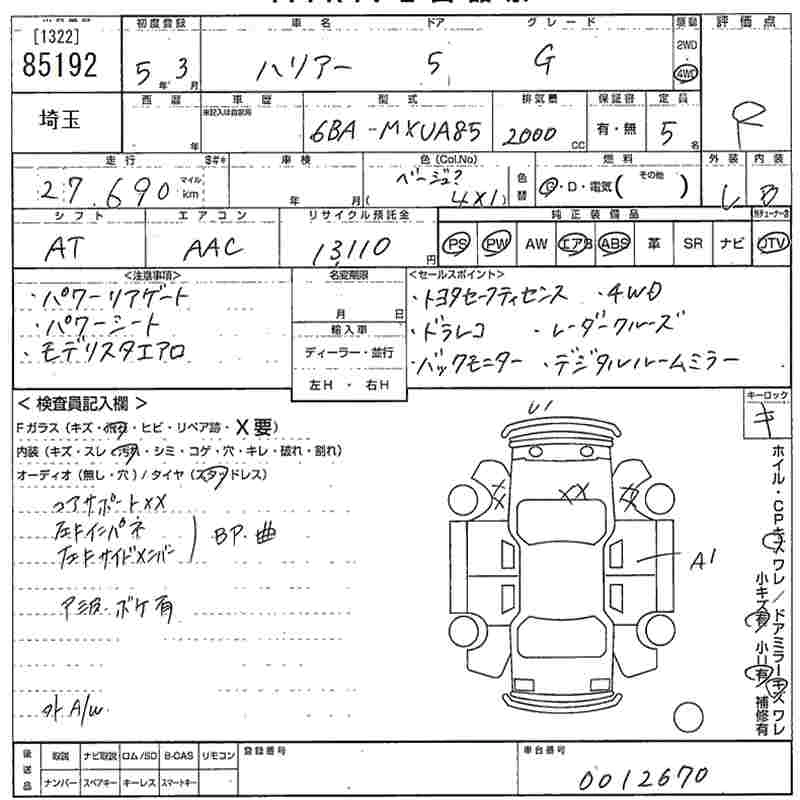 [1322]
85192
埼玉
初度登録
5年 3月
車名
ハリアー
ドア
5
グレード
G
2WD
4WD
評価点
R
西暦
年
車歴
未記入は自家用
型式
6BA-MXUA85
排気量
2000 CC
保証書
有・無
定員
5名
走行
27,690
マイル
km
車検
年 月
色(Col.No)
ベージュ?
(4X1)
色替
燃料
G・D・電気( その他 )
外装
内装
B
シフト
AT
エアコン
AAC
リサイクル預託金
13110円
純正装備品
PS PW AW エアB ABS 革 SR ナビ TV
<注意事項>
・パワーリアゲート
・パワーシート
・モデリスタエアロ
名変期限
月 日
輸入車
ディーラー・並行
左H ・ 右H
<セールスポイント>
・トヨタセーフティセンス ・4WD
・ドラレコ ・レーダークルーズ
・バックモニター ・デジタルルームミラー
< 検査員記入欄 >
Fガラス(キズ・飛石・ヒビ・リペア跡・X要)
内装(キズ・スレ・汚れ・シミ・コゲ・穴・キレ・破れ・割れ)
オーディオ(無し・穴)/タイヤ(スタッドレス)
コアサポートXX
左Fインパネ
左Fサイドメンバー
BP・曲
ボケ有
外A/W
U1
XX
A1
キーロック
キ
ホイル・CPキズワレ/ドアミラーキズワレ
小キズ有 小U有 補修有
後送品
取説 ナビ取説 ロム/SD B-CAS リモコン
ナンバー スペアキー キーレス スマートキー
登録番号
車台番号
0012670